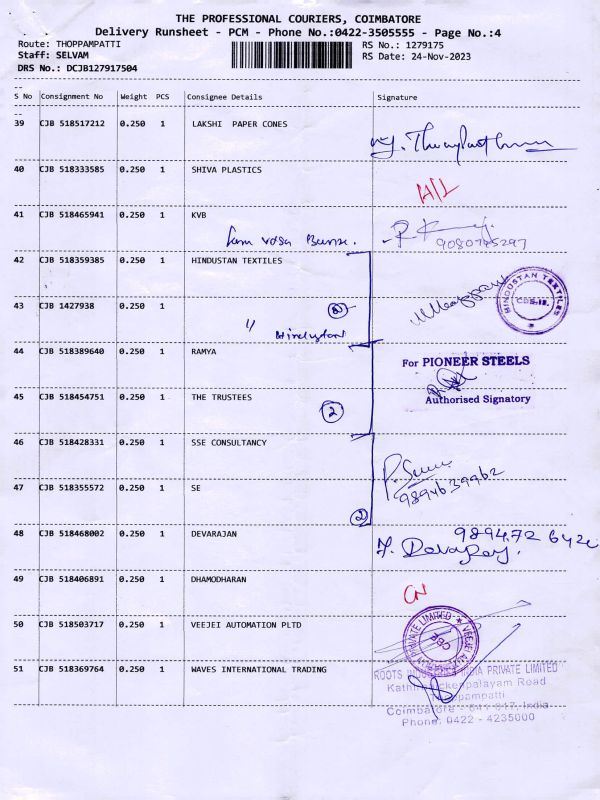 THE PROFESSIONAL COURIERS, COIMBATORE
Delivery Runsheet - PCM - Phone No.:0422-3505555 - Page No.:4
Route: THOPPAMPATTI RS No.: 1279175
Staff: SELVAM RS Date: 24-Nov-2023
DRS No.: DCJB127917504
S No Consignment No Weight PCS Consignee Details Signature
39 CJB 518517212 0.250 1 LAKSHI PAPER CONES
40 CJB 518333585 0.250 1 SHIVA PLASTICS
41 CJB 518465941 0.250 1 KVB
9080745297
42 CJB 518359385 0.250 1 HINDUSTAN TEXTILES
HINDUSTAN TEXTILES
43 CJB 1427938 0.250 1
44 CJB 518389640 0.250 1 RAMYA
For PIONEER STEELS
45 CJB 518454751 0.250 1 THE TRUSTEES 2
Authorised Signatory
46 CJB 518428331 0.250 1 SSE CONSULTANCY
47 CJB 518355572 0.250 1 SE 2
9894639962
48 CJB 518468002 0.250 1 DEVARAJAN
49 CJB 518406891 0.250 1 DHAMODHARAN CN
50 CJB 518503717 0.250 1 VEEJEI AUTOMATION PLTD
51 CJB 518369764 0.250 1 WAVES INTERNATIONAL TRADING
ROOTS INDIA PRIVATE LIMITED
Road
Coimbatore - 641 017, India
Phone: 0422 - 4235000